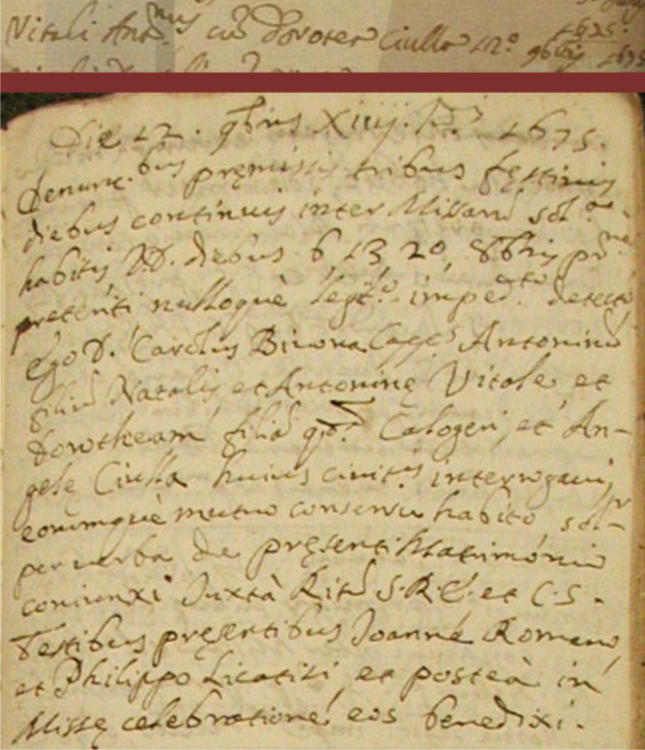 Vitali Ant.nus cũ Dorotea Ciulla 12º 9bris 1675
Die 12. 9bris XIIIJ. Ind. 1675.
Denunc.bus pręmissis tribus festivis
diebus continuis inter Missarũ sol.nia
habitis DD. diebus 6 13 20, 8bris pr.me
preteriti nulloquè legit.º imped.to detecto
Ego D. Carolus Bivona Capp.s Antoninũ
filiũ Natalis et Antoninę Vitale, et
Dorotheam filiã qd. Calogeri, et An-
gelę Ciulla huius civit.is interrogavi,
eorumquè mutuo consensu habito sol.r
per verba de pręsenti Matrimónio
coniunxi Iuxtà Ritũ S.R.E. et C.S.
Testibus pręsentibus Joanne Romano,
et Philippo Licatisi, et posteà in
Missę celebratione, eos benedixi.